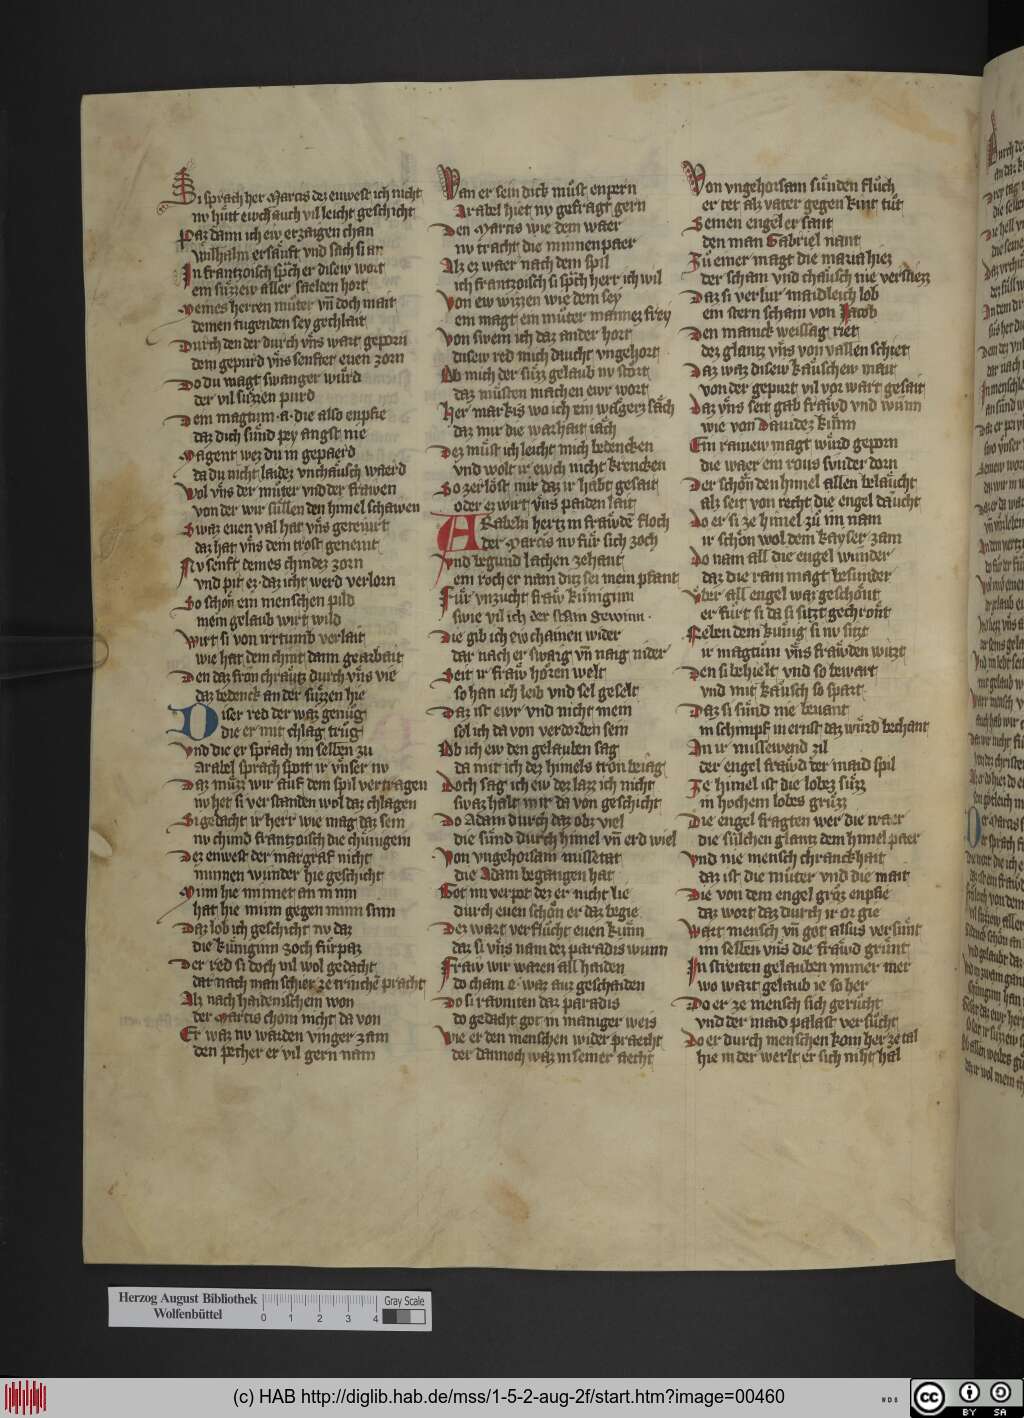 Si sprach her Marcis dez enwest ich nicht
nv hütt ewch auch vil leicht geschicht
Paz dann ich ew erzaigen chan
wilhalm ersäuft vnd sach si an
In frantzoisch sprch er disew wort
ein süzzew aller saelden hort
meines herren müter vnd doch mait
deinen tugenden sey gechlait
Durch den der durch vns wart geporn
dein gepurd vns senftet euen zorn
Do du magt swanger würd
der vil süzzen pürd
Dein magtum a die also enpfie
daz dich sünd pey angst nie
Magent wez du in gepaerd
da du nicht laidez vnchäusch waerd
Wol vns der müter vnd der frawen
von der wir süllen den himel schawen
Swaz euen val hat vns gerewrt
daz hat vns dein trost geneint
Nv senft deines chindez zorn
vnd pit ez daz icht werd verlorn
So schön ein menschen pild
mein gelaub wirt wild
Wirt si von irrtumb verlait
wie hat dein chint dann gearbait
Den daz fron chräutz durch vns vie
daz bedenck an der süzzen hie
Diser red der waz genüg
die er mit chlag trüg
Vnd die er sprach im selben zu
Arabel sprach spott ir vnser nv
Daz müzz wir auf dem spil vertragen
nv het si verstanden wol daz chlagen
Si gedacht ir herr wie mag daz sein
nv chund frantzoisch die chünigein
Dez enwest der margraf nicht
minnen wunder hie geschicht
Minn hie minnet an minn
hat hie minn gegen minn sinn
Daz lob ich geschicht nv daz
die küniginn zoch fürpaz
Der red si doch vil wol gedacht
dar nach man schier ze trinchen pracht
Alz nach haidenischem won
der Marcis chom nicht da von
Er waz nv waiden vinger zam
den pecher er vil gern nam
Wan er sein dick müst enpern
Arabel hiet nv gefragt gern
Den Marcis wie dem waer
nv tracht die minnenpaer
Alz ez waer nach dem spil
ich frantzoisch si sprch herr ich wil
Von ew wizzen wie dem sey
ein magt ein müter mannez frey
Von swem ich daz ander hort
disew red mich däucht vngehort
Ob mich der süzz gelaub nv stört
daz müsten machen ewr wort
Her markis wo ich ein wasgerz säch
daz mir die warhait iäch
Dez müst ich leicht mich bedencken
vnd wolt ir ewch nicht krencken
So zerlöst mir daz ir habt gesait
oder ez wirt vns paiden lait
Arabeln hertz in fräwden floch
der Marcis nv für sich zoch
Vnd begund lachen zehant
ein roch er nam ditz sei mein pfant
Für vnzucht fraw küniginn
swie vil ich der stain gewinn
Die gib ich ew chainen wider
dar nach er swaig vnd naig nider
Seit ir fraw hohen welt
so han ich leib vnd sel geselt
Daz ist ewr vnd nicht mein
sol ich da von verdorben sein
Ob ich ew den gelauben sag
da mit ich dez himels tron beiag
Doch sag ich ew dez lazz ich nicht
swaz halt mir da von geschicht
Do Adam durch daz obz viel
die sünd durch himel vnd erd wiel
Von vngehorsam missetat
die Adam begangen hat
Got im verpot dez er nicht lie
durch euen schön er daz begie
Der wart verflücht euen künn
daz si vns nam dez paradis wunn
Fraw wir waren all haiden
do cham e waz auz geschaiden
Do si rawmten daz paradis
do gedacht got in maniger weis
Wie er den menschen wider praecht
der dannoch waz in seiner aecht
Von vngehorsam sünden flüch
er tet alz vater gegen kint tüt
Seinen engel er sant
den man Gabriel nant
Zu einer magt die maria hiez
der scham vnd chäusch nie verstiezz
Daz si verlur maidleich lob
ein stern scham von Jacob
Den manick weissag riet
dez glantz vns von vallen schiet
Daz waz disew käuschew mait
von der gepurt vil vor wart gesait
Daz vns seit gab fräwd vnd wunn
wie von Dauidez künn
Ein rainew magt würd geporn
die waer ein rous sunder dorn
Der schön den himel allen erläucht
alz seit von recht die engel däucht
Do er si ze himel zu im nam
ir schön wol dem kayser zam
Do nam all die engel wunder
daz die rain magt besunder
Vber all engel waz geschönt
er fürt si da si sitzt gechrönt
Neben dem künig si nv sitzt
ir magtum vns fräwden witzt
Den si behielt vnd so bewart
vnd mit käusch so spart
Daz si sünd nie bevant
in schimpf in ernst daz würd bechant
An ir missewend zil
der engel fräwd der maid spil
Ze himel ist die lobez süzz
in hochem lobes grüzz
Die engel fragten wer die waer
die sülchen glantz dem himel paer
Vnd nie mensch chranckhait
daz ist die müter vnd die mait
Die von dem engel gröz enpfie
daz wort daz durch ir or gie
Wart mensch vnd got alsus versünt
im sellen vns die fräwd grünt
In streiten gelauben immer mer
wo wart gelaub ie so her
Do er ze mensch sich gerücht
vnd der maid palast versücht
Do er durch menschen kom her ze tal
hie in der werlt er sich niht hal
Herzog August Bibliothek
Wolfenbüttel
0 1 2 3 4
Gray Scale
(c) HAB http://diglib.hab.de/mss/1-5-2-aug-2f/start.htm?image=00460
cc BY SA